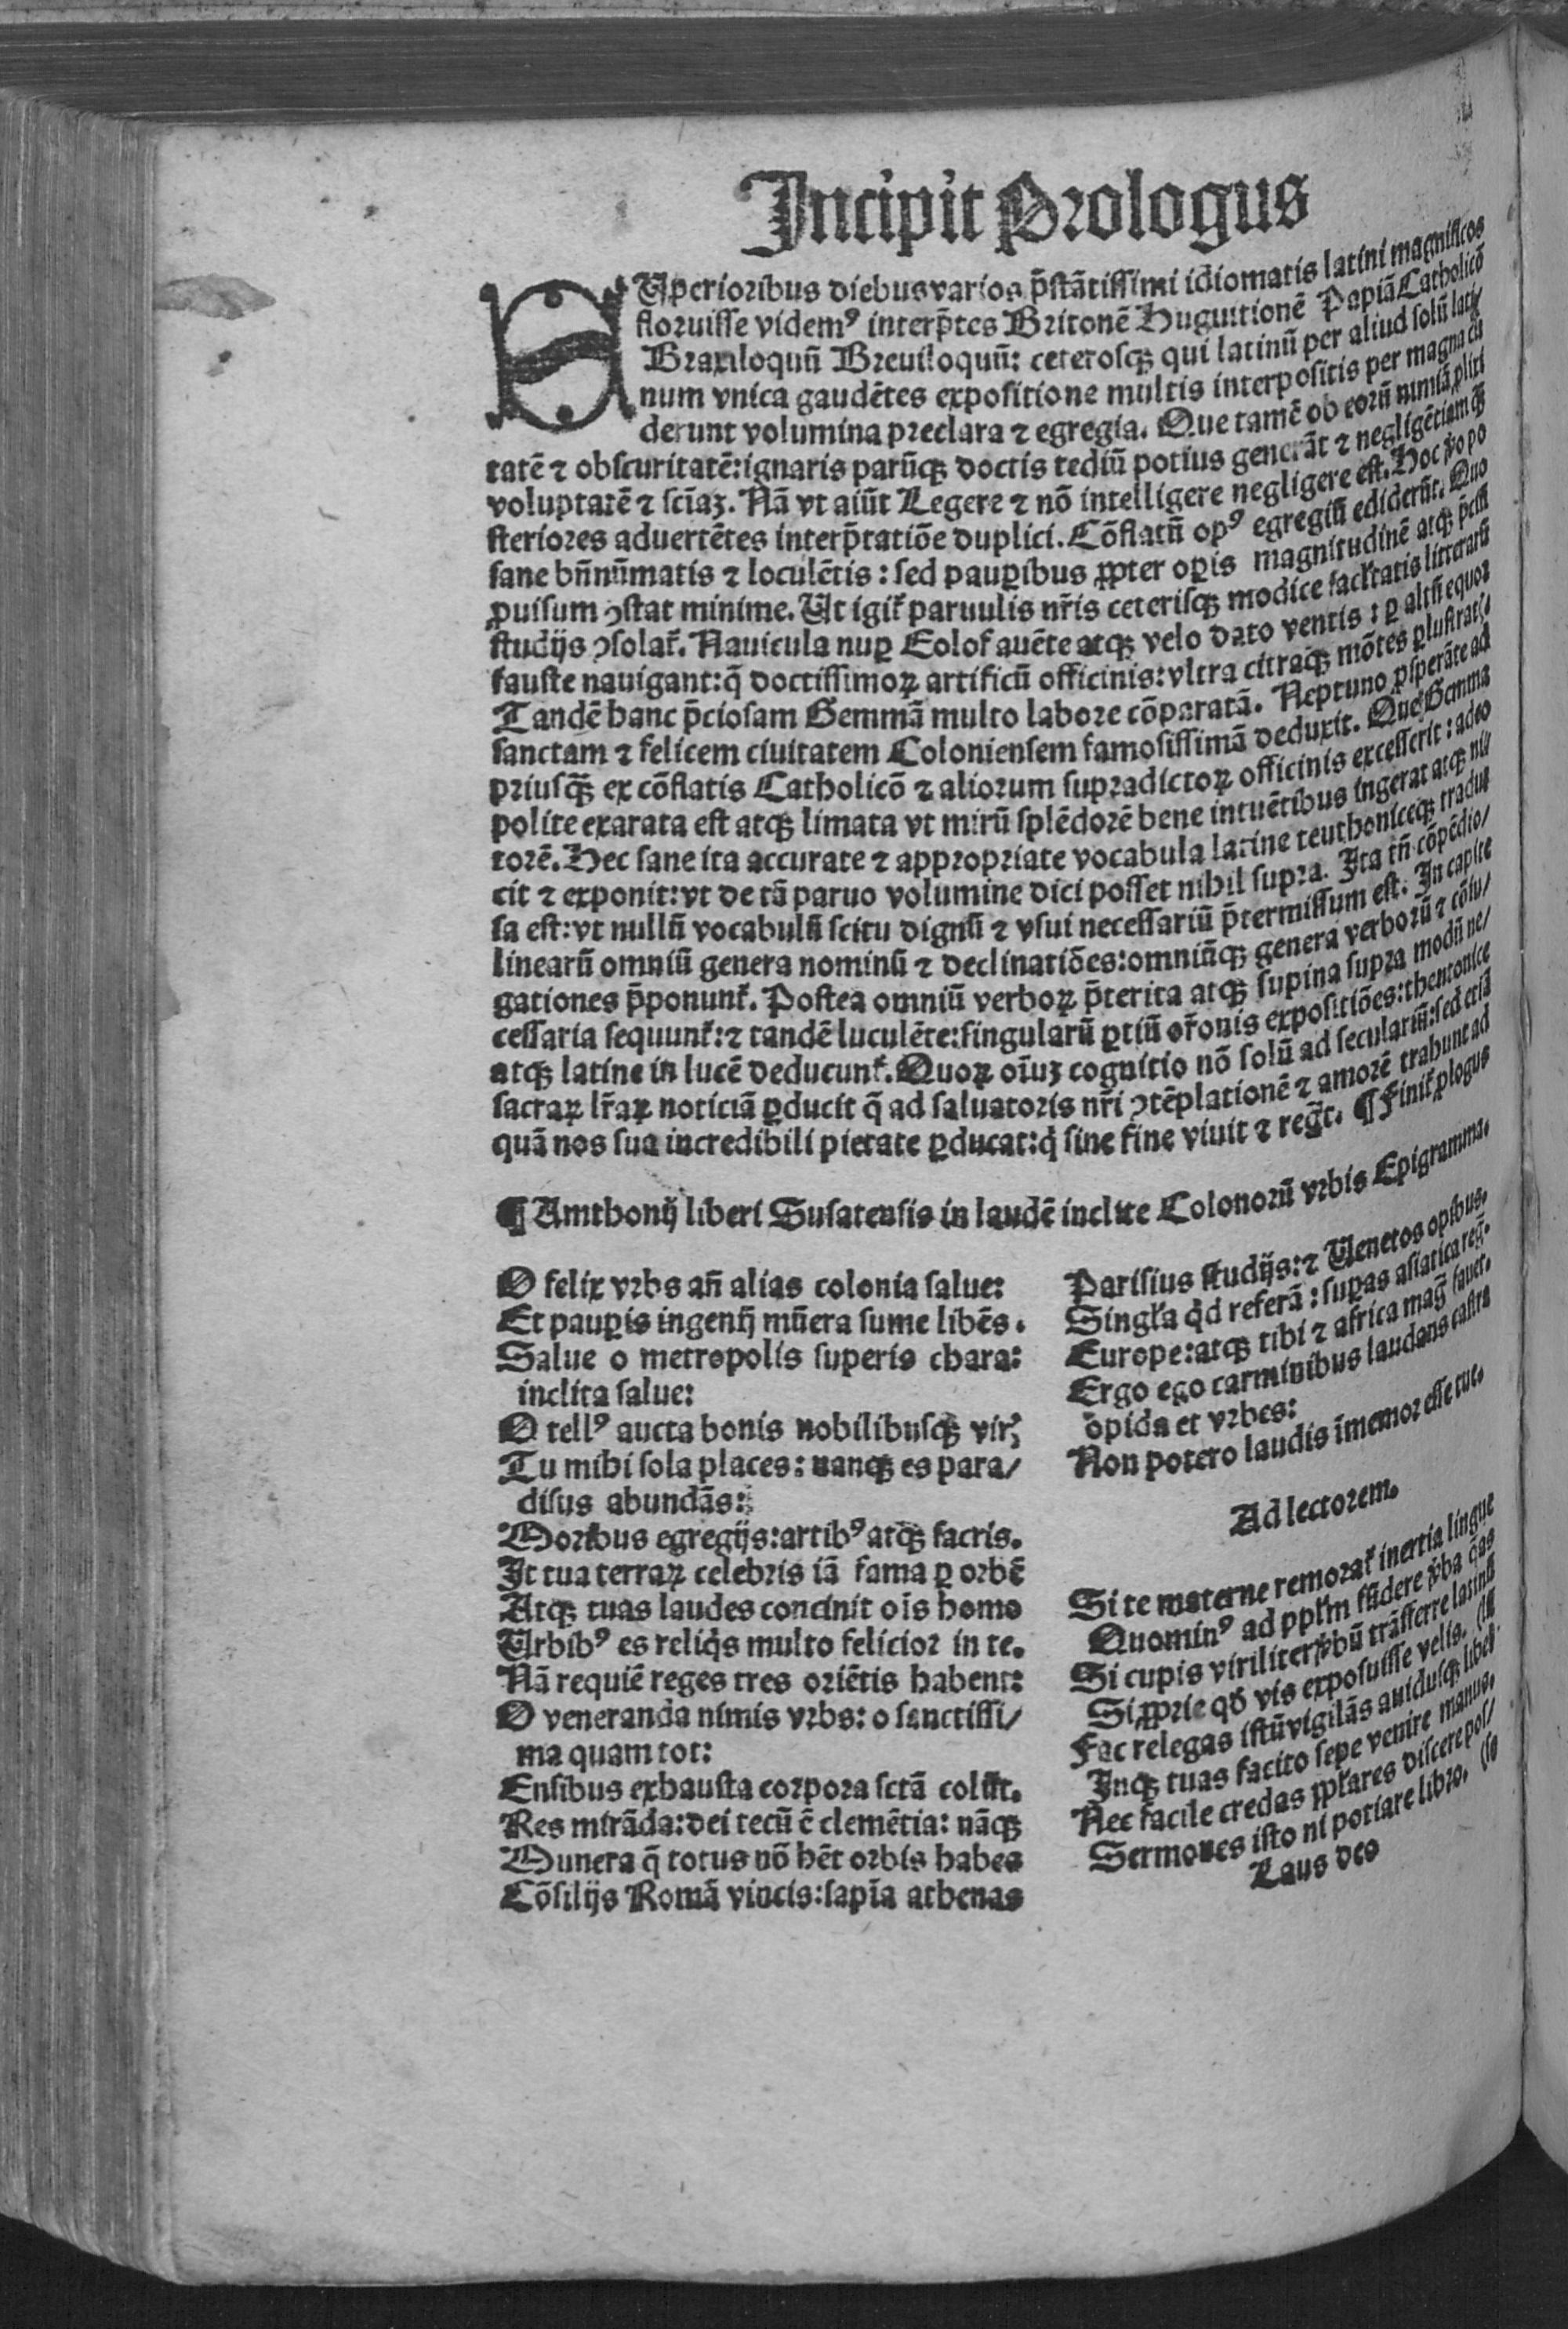 Incipit Prologus
SUperioribus diebus varios p̄stātissimi idiomatis latini magnificos
floruisse videmꝰ interp̄tes Britonē Huguitionē Papiā Catholicō
Braxiloquū Breuiloquū: ceterosqꝫ qui latinū per aliud solū lati/
num vnica gaudētes expositione multis interpositis per magna cū
derunt volumina preclara ⁊ egregia. Que tamē ob eorū nimiā ꝓlixi
tatē ⁊ obscuritatē: ignaris parūqꝫ doctis tediū potius generāt ⁊ negligētiam qꝫ
voluptatē ⁊ sciāꝫ. Nā vt aiūt Legere ⁊ nō intelligere negligere est. Hoc ꝟo po
steriores aduertētes interp̄tatiōe duplici. Cōflatū opꝰ egregiū ediderūt. Quo
sane bn̄nūmatis ⁊ loculētis: sed pauꝑibus ꝓpter oꝑis magnitudinē atqꝫ p̄ciū
ꝓuisum ꝯstat minime. Ut igit̄ paruulis nr̄is ceterisqꝫ modice facl̄tatis litterarū
studijs ꝯsolat̄. Nauicula nuꝑ Eolof auēte atqꝫ velo dato ventis: ꝑ altū equor
fauste nauigant: q̄ doctissimoꝝ artificū officinis: vltra citraqꝫ mōtes ꝑlustrat/
Tandē hanc p̄ciosam Gemmā multo labore cōparatā. Neptuno ꝓsperāte ad
sanctam ⁊ felicem ciuitatem Coloniensem famosissimā deduxit. Que Gemma
priusqꝫ ex cōflatis Catholicō ⁊ aliorum supradictoꝝ officinis excesserit: adeo
polite exarata est atqꝫ limata vt mirū splēdorē bene intuētibus ingerat atqꝫ ni/
torē. Hec sane ita accurate ⁊ appropriate vocabula latine teuthoniceqꝫ tradu
cit ⁊ exponit: vt de tā paruo volumine dici posset nihil supra. Ita tn̄ cōpēdio/
sa est: vt nullū vocabulū scitu dignū ⁊ vsui necessariū p̄termissum est. In capite
linearū omniū genera nominū ⁊ declinatiōes: omniūqꝫ genera verborū ⁊ cōiu/
gationes p̄ponunt̄. Postea omniū verboꝝ p̄terita atqꝫ supina supra modū ne/
cessaria sequunt̄: ⁊ tandē luculēte: singularū ꝑtiū or̄onis expositiōes: theutonice
atqꝫ latine in lucē deducunt̄. Quoꝝ oīuꝫ cognitio nō solū ad seculariū: sed etiā
sacraꝝ lr̄aꝝ noticiā ꝑducit q̄ ad saluatoris nr̄i ꝯtēplationē ⁊ amorē trahunt ad
quā nos sua incredibili pietate ꝑducat: q̇ sine fine viuit ⁊ reḡt. ¶ Finit̄ ꝓlogus
¶ Amthonij liberi Susatensis in laudē inclite Colonorū vrbis Epigramma.
O felix vrbs an̄ alias colonia salue:
Et pauꝑis ingenij mūera sume libēs.
Salue o metropolis superis chara:
inclita salue:
O tellꝰ aucta bonis nobilibusqꝫ vir̄ꝫ
Tu mihi sola places: nanqꝫ es para/
disus abundās:
Moribus egregijs: artibꝰ atqꝫ sacris.
It tua terraꝝ celebris iā fama ꝑ orbē
Atqꝫ tuas laudes concinit oīs homo
Urbibꝰ es reliq̇s multo felicior in te.
Nā requiē reges tres oriētis habent:
O veneranda nimis vrbs: o sanctissi/
ma quam tot:
Ensibus exhausta corpora sctā colūt.
Res mirāda: dei tecū ē clemētia: nāqꝫ
Munera q̄ totus nō hēt orbis habes
Cōsilijs Romā vincis: sapīa athenas
Parisius studijs: ⁊ Uenetos opibus.
Singl̄a q̇d referā: suꝑas asiatica reḡ.
Europe: atqꝫ tibi ⁊ africa maḡ fauet.
Ergo ego carminibus laudans castra
opida et vrbes:
Non potero laudis īmemor esse tue.
Ad lectorem.
Si te materne remorat̄ inertia lingue
Quominꝰ ad ppl̄m fūdere ꝟba q̄as
Si cupis viriliter ꝟbū trāsferre latinū
Si ꝓprie qd̄ vis exposuisse velis.
Fac relegas istū vigilās auidusqꝫ libel (lū
Inqꝫ tuas facito sepe venire manus.
Nec facile credas ppl̄ares discere pos/
Sermones isto ni potiare libro. (se
Laus deo